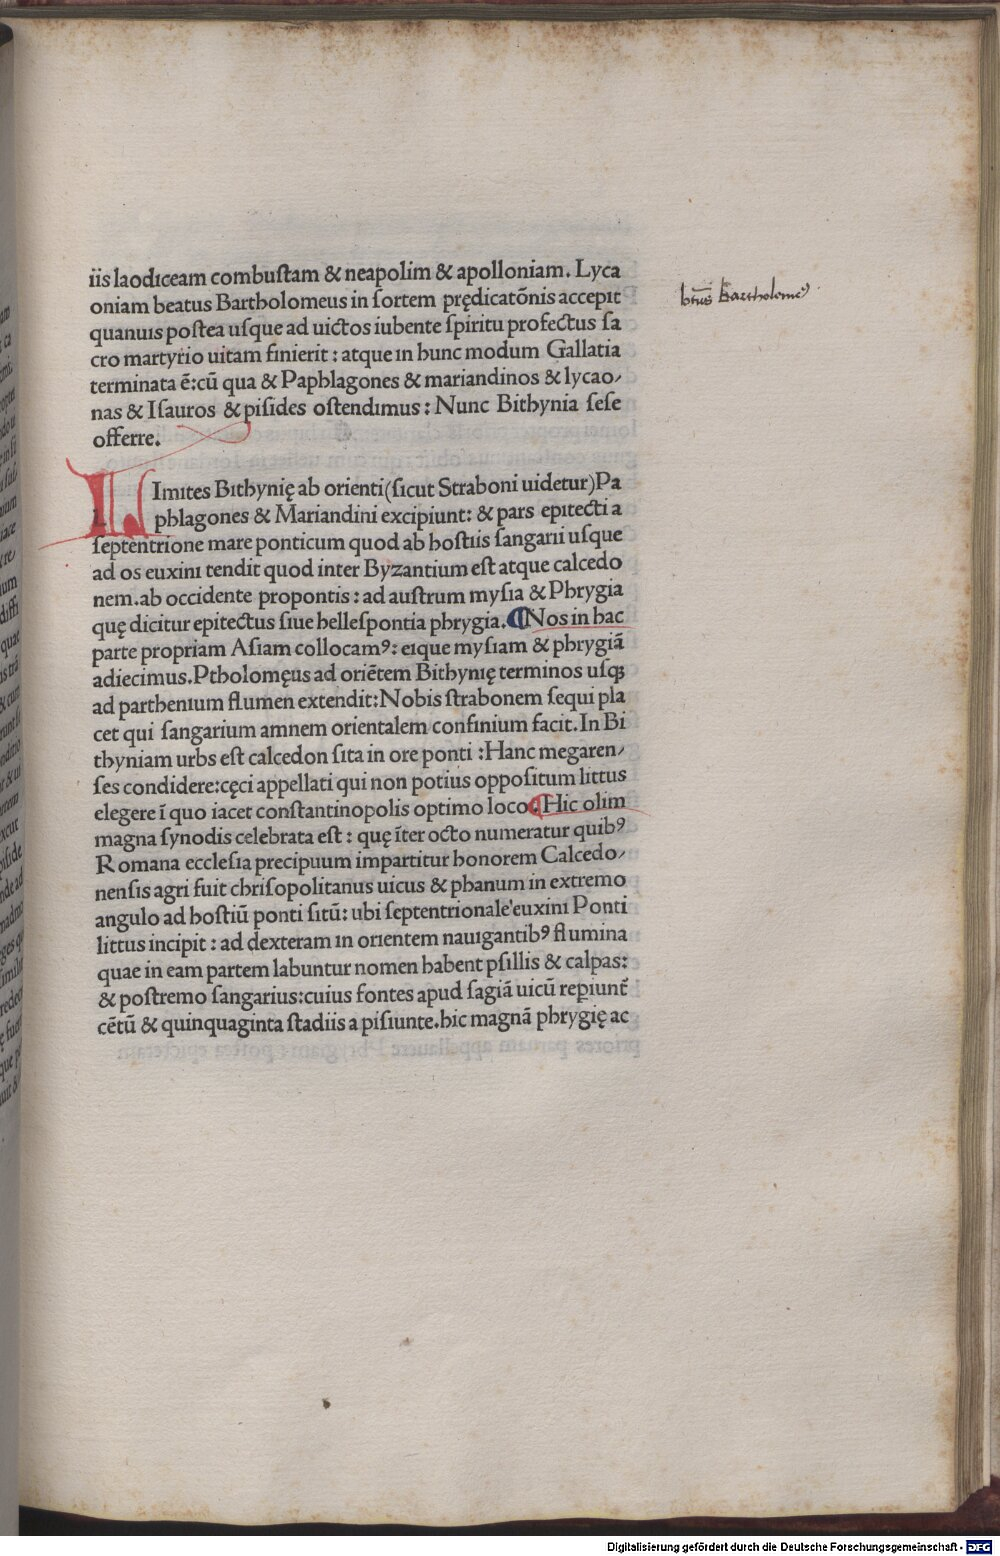 iis laodiceam combustam & neapolim & apolloniam. Lyca
oniam beatus Bartholomeus in sortem prędicatōnis accepit
quanuis postea usque ad uictos iubente spiritu profectus sa
cro martyrio uitam finierit : atque in hunc modum Gallatia
terminata ē:cū qua & Paphlagones & mariandinos & lycao/
nas & Isauros & pisides ostendimus : Nunc Bithynia sese
offerre.
btus Bartholomeꝰ
LImites Bithynię ab orienti (sicut Straboni uidetur) Pa
phlagones & Mariandini excipiunt: & pars epitecti a
septentrione mare ponticum quod ab hostiis sangarii usque
ad os euxini tendit quod inter Byzantium est atque calcedo
nem. ab occidente propontis : ad austrum mysia & Phrygia
quę dicitur epitectus siue hellespontia phrygia. ¶Nos in hac
parte propriam Asiam collocamꝰ: eique mysiam & phrygiā
adiecimus. Ptholomęus ad oriētem Bithynię terminos usqꝫ
ad parthenium flumen extendit: Nobis strabonem sequi pla
cet qui sangarium amnem orientalem confinium facit. In Bi
thyniam urbs est calcedon sita in ore ponti : Hanc megaren/
ses condidere:cęci appellati qui non potius oppositum littus
elegere ī quo iacet constantinopolis optimo loco. ¶Hic olim
magna synodis celebrata est : quę īter octo numeratur quibꝰ
Romana ecclesia precipuum impartitur honorem Calcedo/
nensis agri fuit chrisopolitanus uicus & phanum in extremo
angulo ad hostiū ponti sitū: ubi septentrionale euxini Ponti
littus incipit : ad dexteram in orientem nauigantibꝰ flumina
quae in eam partem labuntur nomen habent psillis & calpas:
& postremo sangarius:cuius fontes apud sagiā uicū repiunt̄
cētū & quinquaginta stadiis a pisiunte. hic magnā phrygię ac
Digitalisierung gefördert durch die Deutsche Forschungsgemeinschaft - DFG